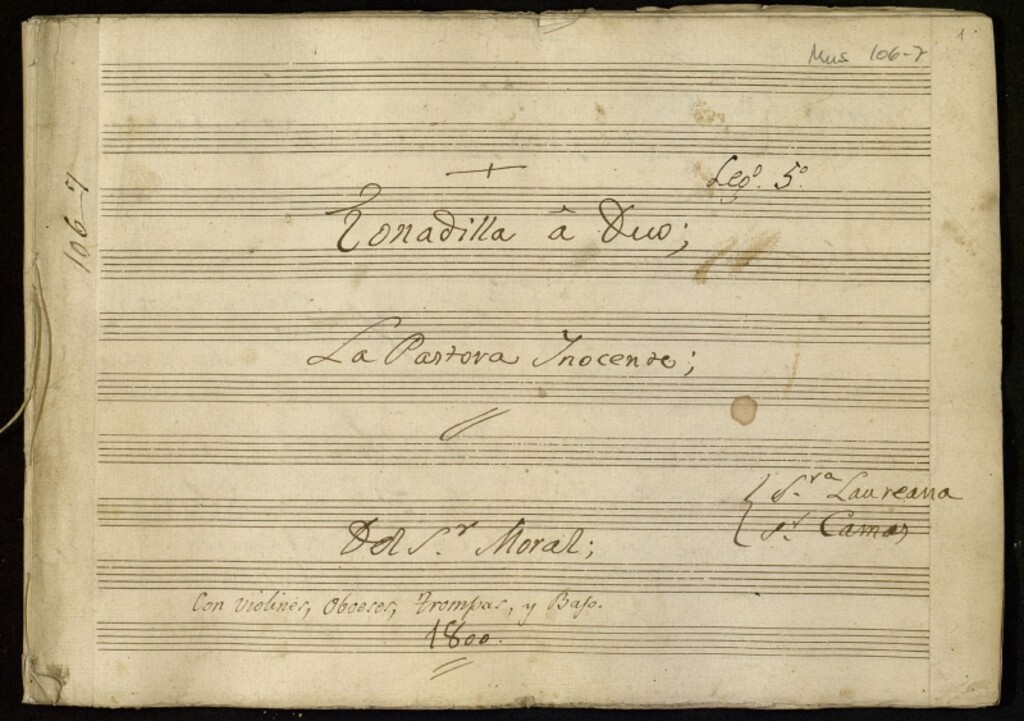 1
Mus 106-7
106-7
Legº. 5º.
Tonadilla â Duo;
La Pastora Inocente;
S.ra Laureana
S.r Camas
Del S.r Moral;
Con violines, Oboeses, Trompas, y Bajo.
1800.